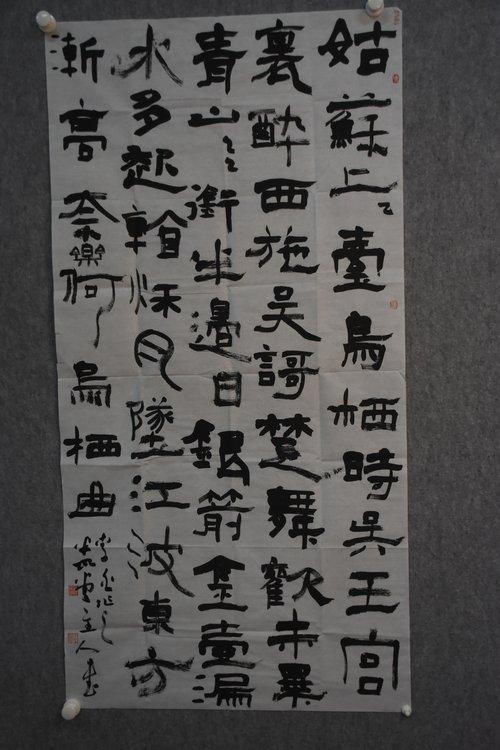 姑蘇上臺烏栖時吳王宮
裏醉西施吳謌楚舞歡未畢
青山銜半邊日銀箭金壺漏
水多起看秋月墜江波東方
漸高奈樂何烏栖曲
主人書